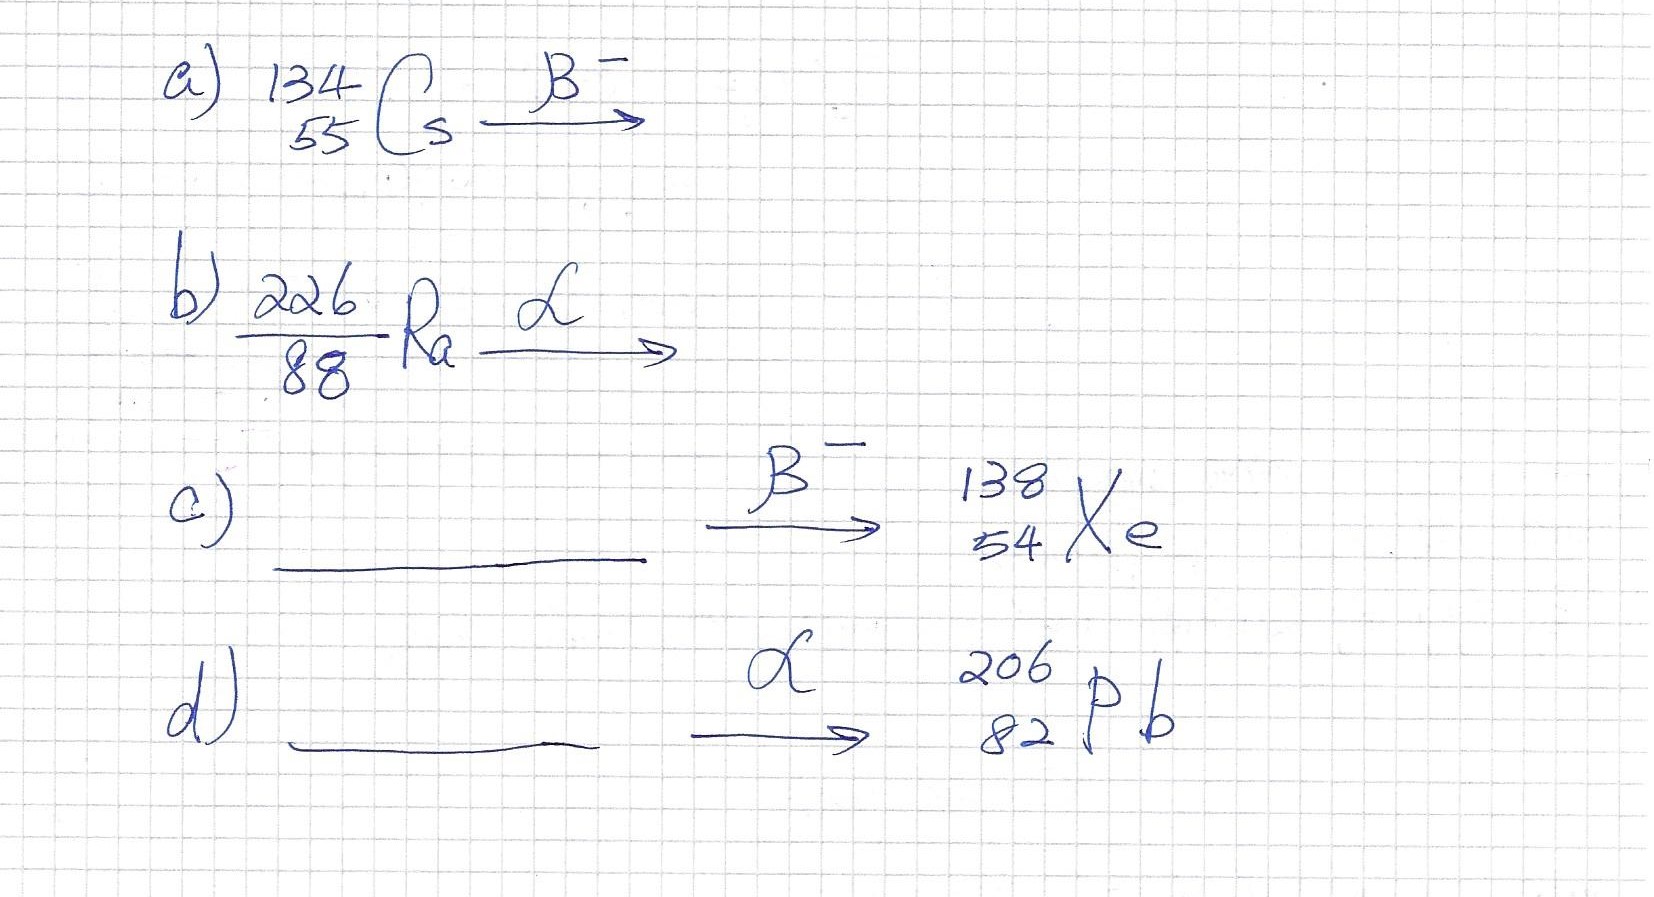 a) ¹³⁴₅₅Cs β⁻ →
b) ²²⁶/₈₈ Ra α →
c) ________ β⁻ → ¹³⁸₅₄Xe
d) ________ α → ²⁰⁶₈₂Pb